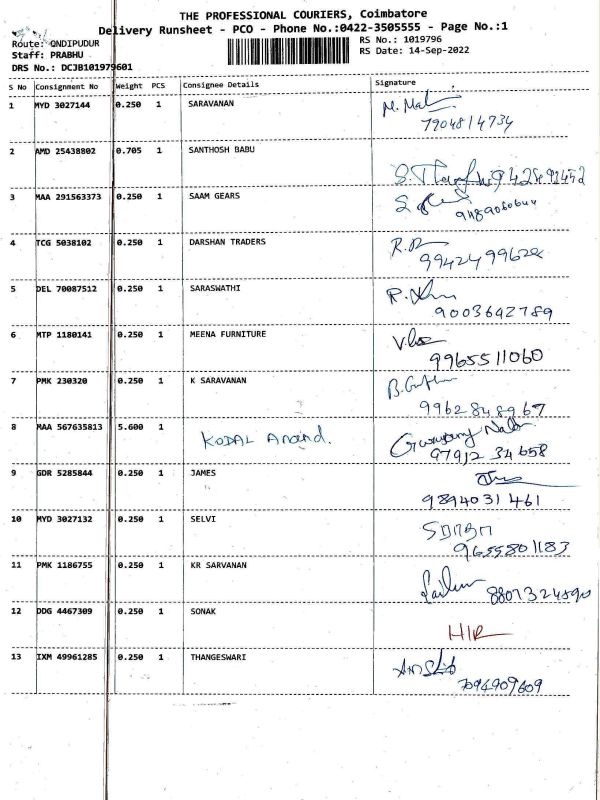 THE PROFESSIONAL COURIERS, Coimbatore
Delivery Runsheet - PCO - Phone No.:0422-3505555 - Page No.:1
Route: ONDIPUDUR
RS No.: 1019796
Staff: PRABHU
RS Date: 14-Sep-2022
DRS No.: DCJB101979601
S No Consignment No Weight PCS Consignee Details Signature
1 MYD 3027144 0.250 1 SARAVANAN
7904814734
2 AMD 25438802 0.705 1 SANTHOSH BABU
3 MAA 291563373 0.250 1 SAAM GEARS
4 TCG 5038102 0.250 1 DARSHAN TRADERS
5 DEL 70087512 0.250 1 SARASWATHI
9003642789
6 MTP 1180141 0.250 1 MEENA FURNITURE
9965511060
7 PMK 230320 0.250 1 K SARAVANAN
9962848967
8 MAA 567635813 5.600 1 KODAL Anand.
97912 34658
9 GDR 5285844 0.250 1 JAMES
9894031461
10 MYD 3027132 0.250 1 SELVI
9655801183
11 PMK 1186755 0.250 1 KR SARVANAN
8807324890
12 DDG 4467309 0.250 1 SONAK
13 IXM 49961285 0.250 1 THANGESWARI
7094909609